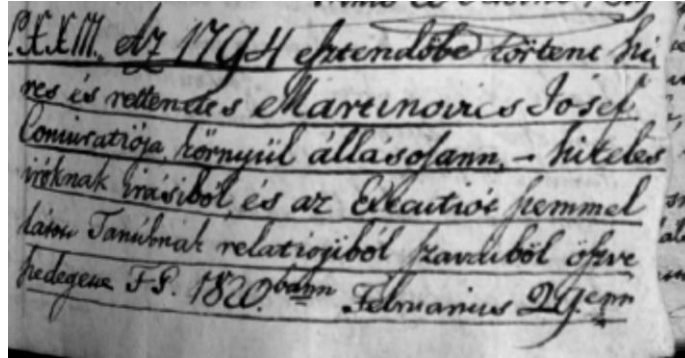 LXXIII. Az 1794 esztendőbe törtent hi
res és rettendes Martinovics Josef
Coniuratiója környül állásosann, – hiteles
iróknak irásiból és az Executiót szemmel
látott Tanúbnak relatiojiból szavaiból öszve
szedegette F P. 1820.bann Februarius 29.enn